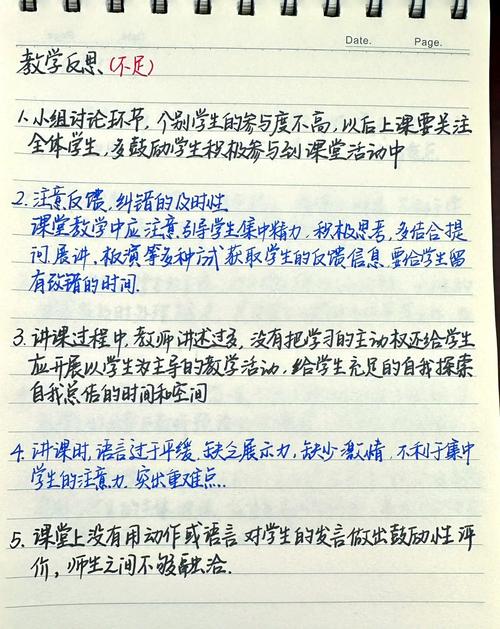 Date. Page.
教学反思(不足)
1.小组讨论环节,个别学生的参与度不高,以后上课要关注
全体学生,多鼓励学生积极参与到课堂活动中
2.注意反馈,纠错的及时性
课堂教学中应注意引导学生集中精力,积极思考,多结合提
问、展讲、板演等多种方式获取学生的反馈信息,要给学生留
有改错的时间.
3.讲课过程中,教师讲述过多,没有把学习的主动权还给学生
应开展以学生为主导的教学活动,给学生充足的自我探索
自我总结的时间和空间
4.讲课时,语言过于平缓,缺乏展示力,缺少激情,不利于集中
学生的注意力,突出重难点...
5.课堂上没有用动作或语言对学生的发言做出鼓励性评
价,师生之间不够融洽.